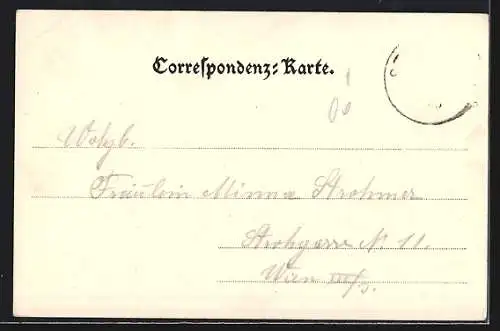 Correspondenz-Karte.
Wohlgb.
Fräulein Minna Strohmer
Strohgasse N 11.
Wien III/3.